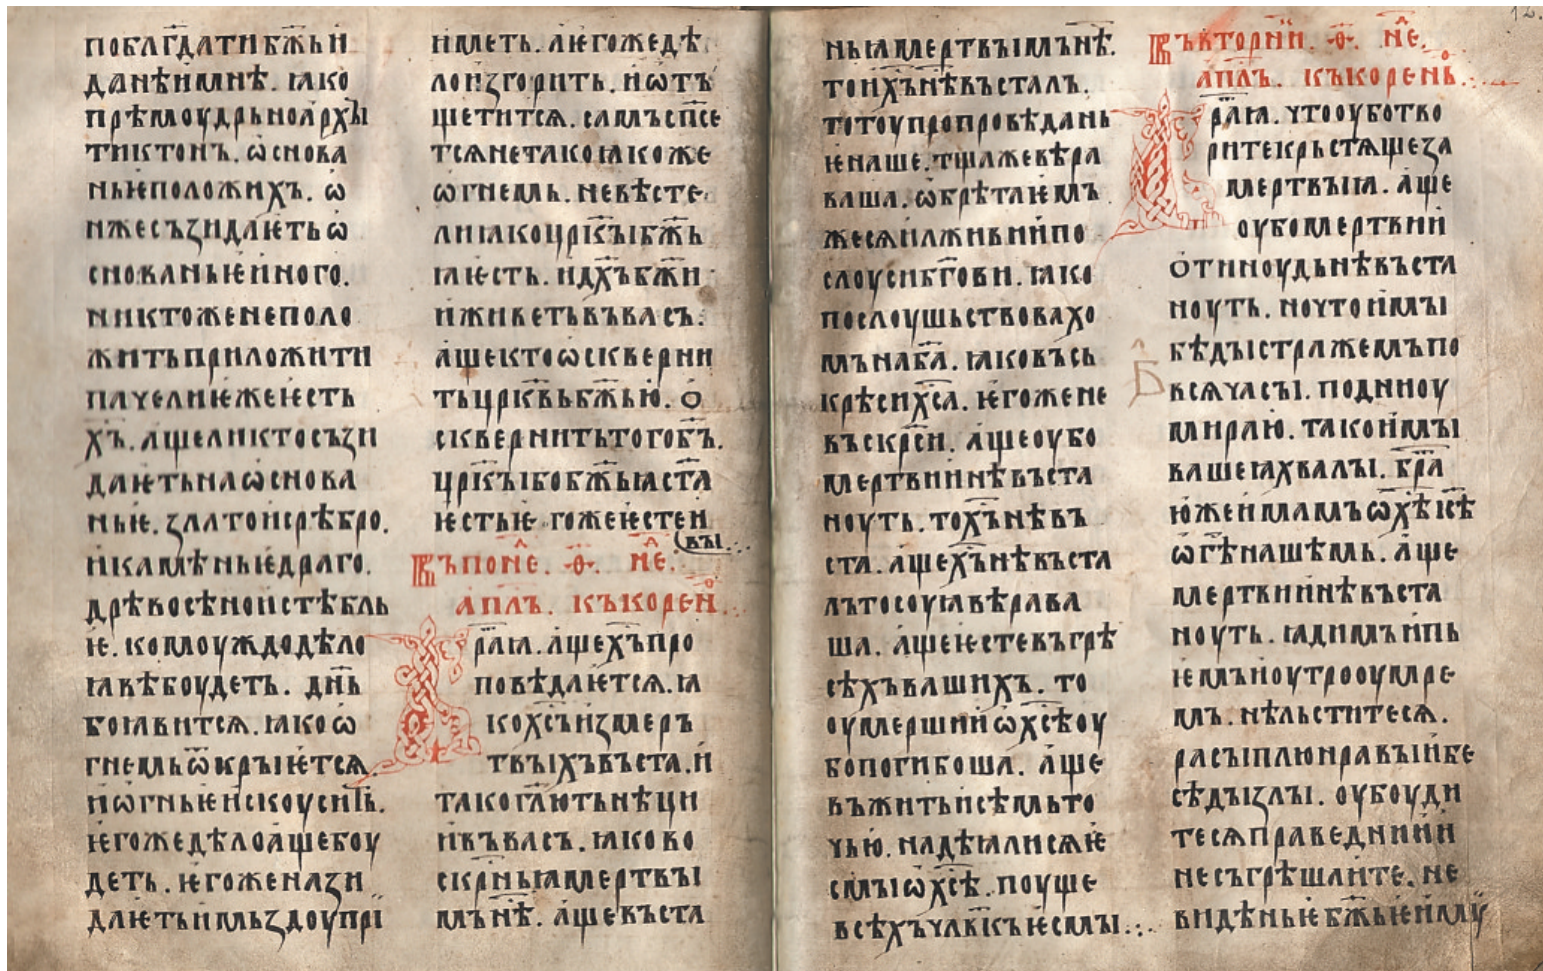 поблгдⷭ҇атибж҃ьи
данѣимнѣ. ꙗко
прѣмоудрьноархы
тиктонъ. ѡснова
ньѥположихъ. ѡ
нжесъзидаѥтьѡ
снованьѥиного.
никтоженеполо
житьприложити
пачелиѥжеѥсть
хъ҃. ащеликтосъзи
даѥтьнаѡснова
ньѥ. златоисрѣбро.
икамѣньѥдраго.
дрѣвосѣноистѣбль
ѥ. комоуждодѣло
ꙗвѣбоудеть. дн҃ь
боꙗвится. ꙗкоѡ
гнемьѿкрыѥтсѧ.
иѡгньѥискоусить.
ѥгожедѣлоащебоу
деть. ѥгоженази
даѥтьимьздоупрі
иметь. аѥгожедѣ
лоизгорить. иѡтъ
щетитсѧ. самъсп҃се
тсѧнетакоꙗкоже
ѡгнемь. невѣсте
лиꙗкоцр҃кꙑбж҃ь
ꙗѥсть. идх҃ъбж҃и
иживетьвъвасъ.
ащектоѡскверни
тьцр҃квьбж҃ью. ѻ
сквернитьтогоб҃ъ.
цр҃кꙑбобж҃ьꙗст҃а
ѥстьѥгожеѥстеи
вꙑ.
Въпонⷣе. ѳ҃. неⷣ.
апл҃ъ. къкоренⷴ.
Браⷮꙗ. ащехъ҃про
повѣдаѥтсѧ. ꙗ
кохс҃ъизмеръ
твꙑхъвъста. и
такогл҃ютьнѣци
ивъвасъ. ꙗково
скрн҃ьꙗмертвꙑ
мънѣ҃. ащевъста
ньꙗмертвꙑмънѣ҃.
тоих҃ънѣвъсталъ.
тотоупропровѣдань
ѥнаше. тщажевѣра
ваша. ѡбрѣтаѥмъ
жесѧилживиипо
слоусибг҃ови. ꙗко
послоушьствовахо
мънаба҃. ꙗковъсь
крѣсихс҃а. ѥгожене
въскрс҃и. ащеоубо
мертвиинѣвъста
ноуть. тох҃ънѣвъ
ста. ащех҃ънѣвъста
лътосоуꙗвѣрава
ша. ащеѥстевъгрѣ
сѣхъвашихъ. то
оумершииѡхс҃ѣоу
бопогибоша. аще
въжитьисѣмьто
чью. надѣꙗлисѧѥ
смꙑѡхс҃ѣ. поуще
всѣхъчлв҃къѥсмꙑ.
Въвторнии. ѳ҃. неⷣ.
апл҃ъ. къкоренⷴ.
Браⷮꙗ. чтооуботво
ритекрьстѧщеза
мертвꙑꙗ. аще
оубомертвии
ѻтиноудьнѣвъста
ноуть. ночтоимꙑ
бѣдꙑстражемъпо
всѧчасꙑ. поднноу
мираю. такоимꙑ
вашеꙗхвалꙑ. браⷮ
южеимамъѡхс҃ѣісѣ҃
ѡгѣ҃нашемь. аще
мертвиинѣвъста
ноуть. ꙗдимъипь
ѥмъиоутрооумре
мъ. нѣльститесѧ.
расꙑплюнравꙑибе
сѣдꙑзлꙑ. оубоуди
тесѧправеднии
несъгрѣшаите. не
видѣньѥбж҃ьѥиму